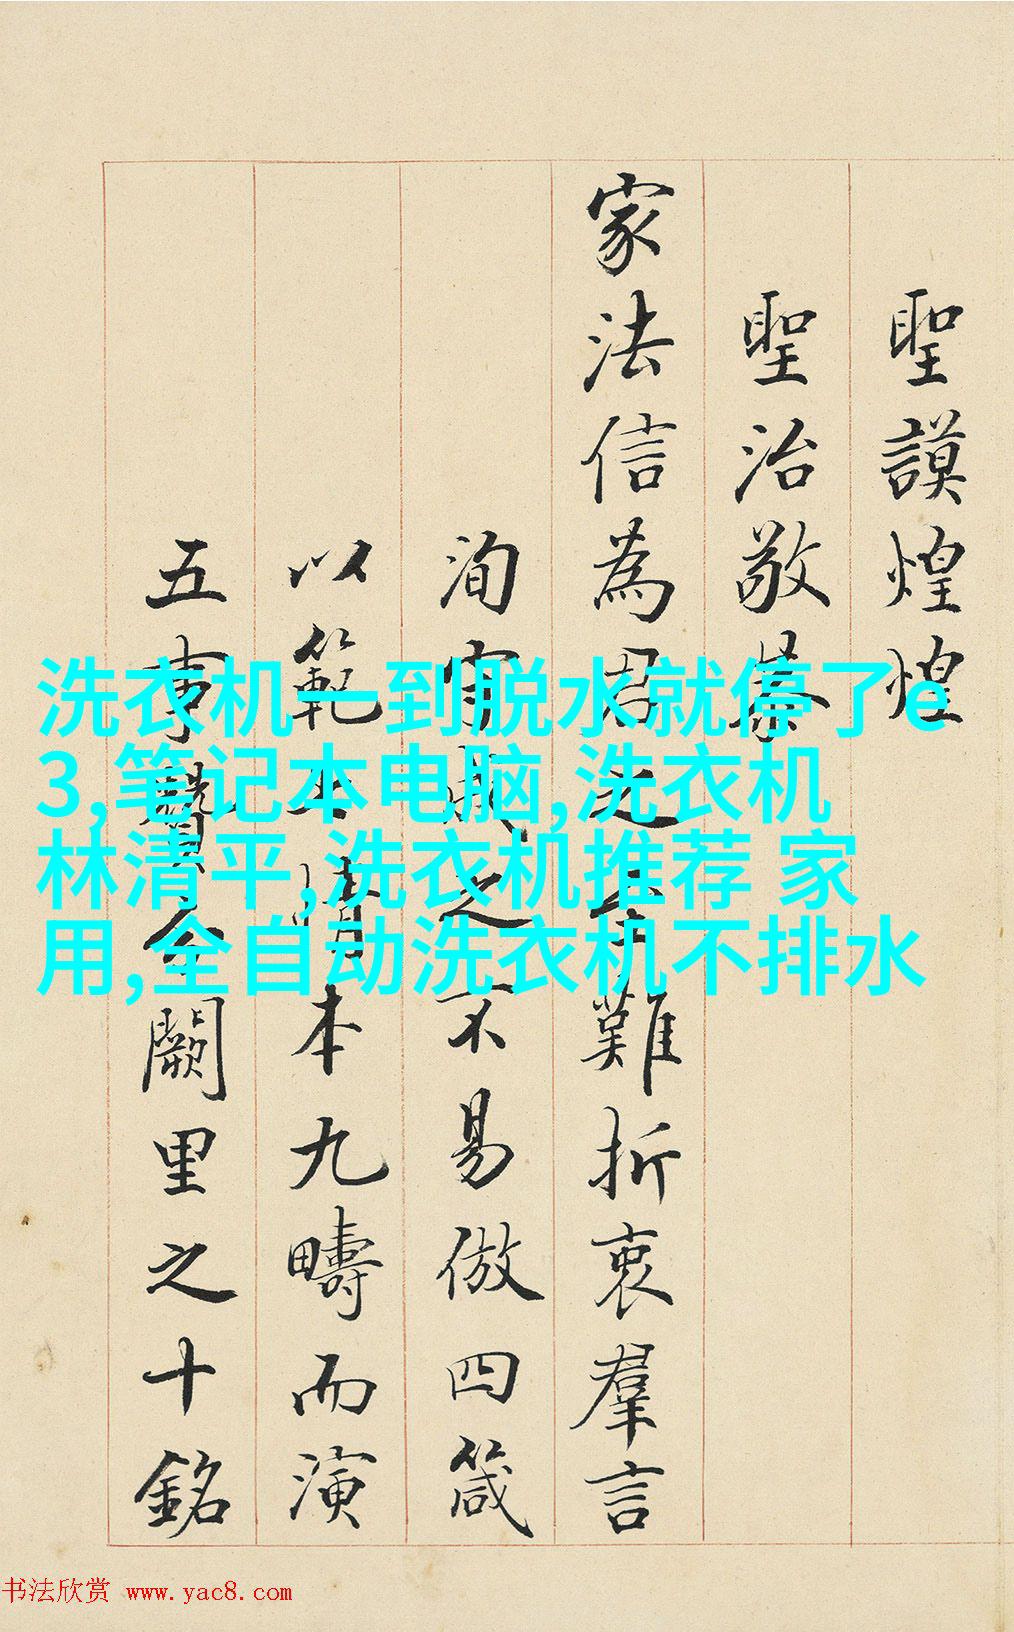 聖謨煌煌
聖治敬慕
家法信為君之至難折衷羣言
洵守成之不易倣四箴
以範情本九疇而演
五事贊令闕里之十銘
洗衣机一到脱水就停了e
3,笔记本电脑,洗衣机
林清平,洗衣机推荐 家
用,全自动洗衣机不排水
书法欣赏 www.yac8.com